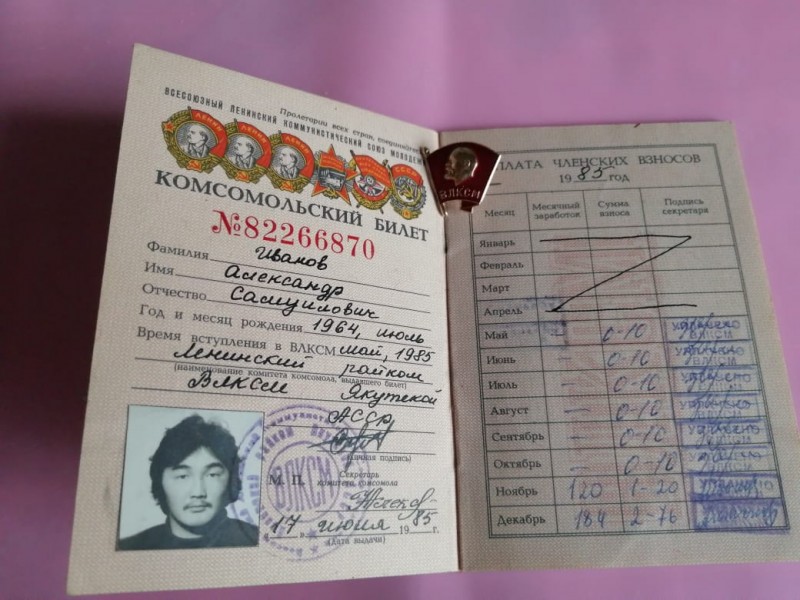 Пролетарии всех стран, соединяйтесь
ВСЕСОЮЗНЫЙ ЛЕНИНСКИЙ КОММУНИСТИЧЕСКИЙ СОЮЗ МОЛОДЕ
КОМСОМОЛЬСКИЙ БИЛЕТ
№82266870
Фамилия Иванов
Имя Александр
Отчество Самуилович
Год и месяц рождения 1964, июль
Время вступления в ВЛКСМ май, 1985
Ленинский райком
(наименование комитета комсомола, выдавшего билет)
ВЛКСМ Якутской
АССР
(личная подпись)
М. П. Секретарь
комитета комсомола
17 июня 1985 г.
(дата выдачи)
ВЛКСМ
ВЛКСМ
ПЛАТА ЧЛЕНСКИХ ВЗНОСОВ
1985 год
Месяц Месячный заработок Сумма взноса Подпись секретаря
Январь
Февраль
Март
Апрель
Май — 0-10 уплачено ВЛКСМ
Июнь — 0-10 уплачено ВЛКСМ
Июль — 0-10 уплачено ВЛКСМ
Август — 0-10 уплачено ВЛКСМ
Сентябрь — 0-10 уплачено ВЛКСМ
Октябрь — 0-10
Ноябрь 120 1-20
Декабрь 184 2-76